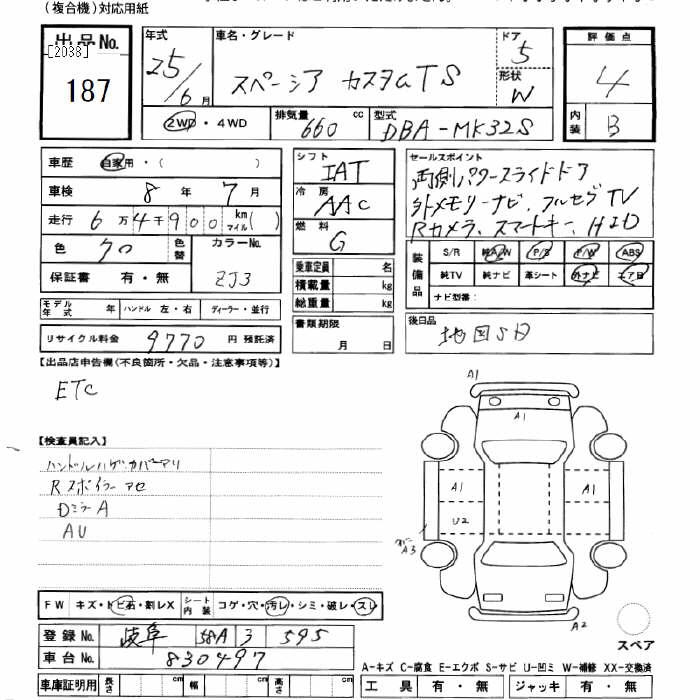 (複合機)対応用紙
出品No.
[2038]
187
年式
25/6月
車名・グレード
スペーシア カスタムTS
ドア
5
形状
W
評価点
4
内装
B
2WD・4WD
排気量 660 cc
型式 DBA-MK32S
車歴 自家用・( )
車検 8年 7月
走行 6万4千900 km マイル( )
色 クロ 色替
カラーNo. ZJ3
保証書 有・無
シフト
IAT
冷房
AAC
燃料
G
乗車定員 名
積載量 kg
総重量 kg
書類期限
月 日
セールスポイント
両側パワースライドドア
外メモリーナビ、フルセグTV
Rカメラ、スマートキー、HID
装備品
S/R 純A/W P/S P/W ABS
純TV 純ナビ 革シート 外ナビ エア B
ナビ型番:
後日品
地図SD
モデル年式 年 ハンドル 左・右 ディーラー・並行
リサイクル料金 9770 円 預託済
【出品店申告欄(不良箇所・欠品・注意事項等)】
ETC
【検査員記入】
ハンドルハゲ・カバーアリ
Rスポイラーアセ
DミラーA
AU
A1
A1
A1
A1
U2
A3
A2
スペア
FW キズ・トビ石・割レX シート内装 コゲ・穴・汚レ・シミ・破レ・スレ
登録No. 岐阜 58A 3 595
車台No. 830497
車庫証明用 長さ cm 幅 cm 高さ cm
A-キズ C-腐食 E-エクボ S-サビ U-凹ミ W-補修 XX-交換済
工具 有・無 ジャッキ 有・無